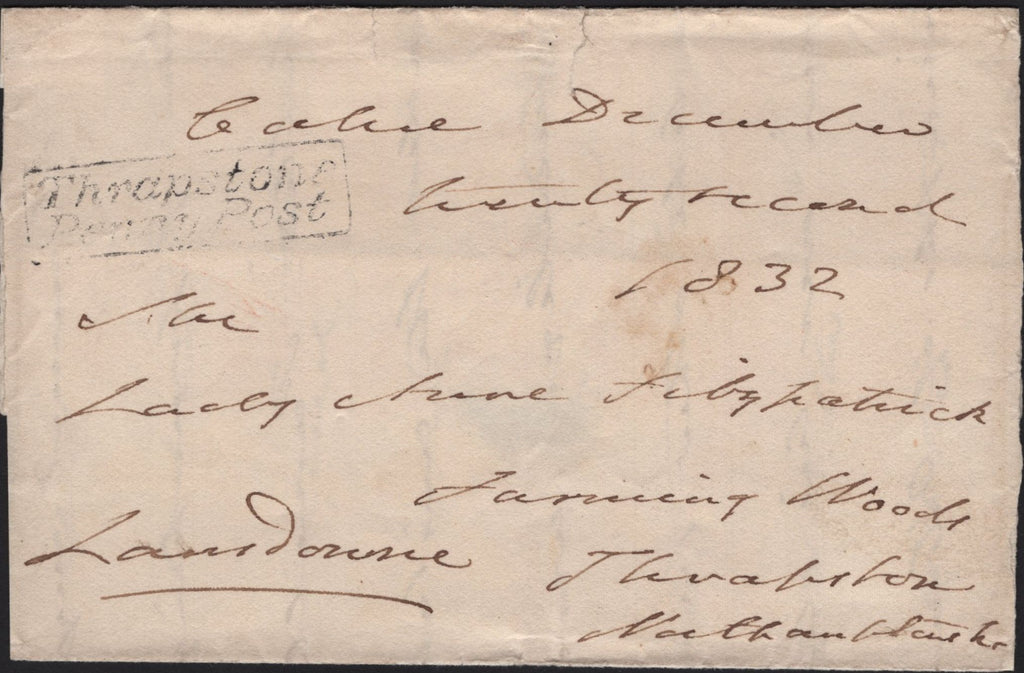 Calne December
Thrapstone
Penny Post
twenty second
1832
The
Lady Anne Fitzpatrick
Farming Woods
Lansdowne
Thrapston